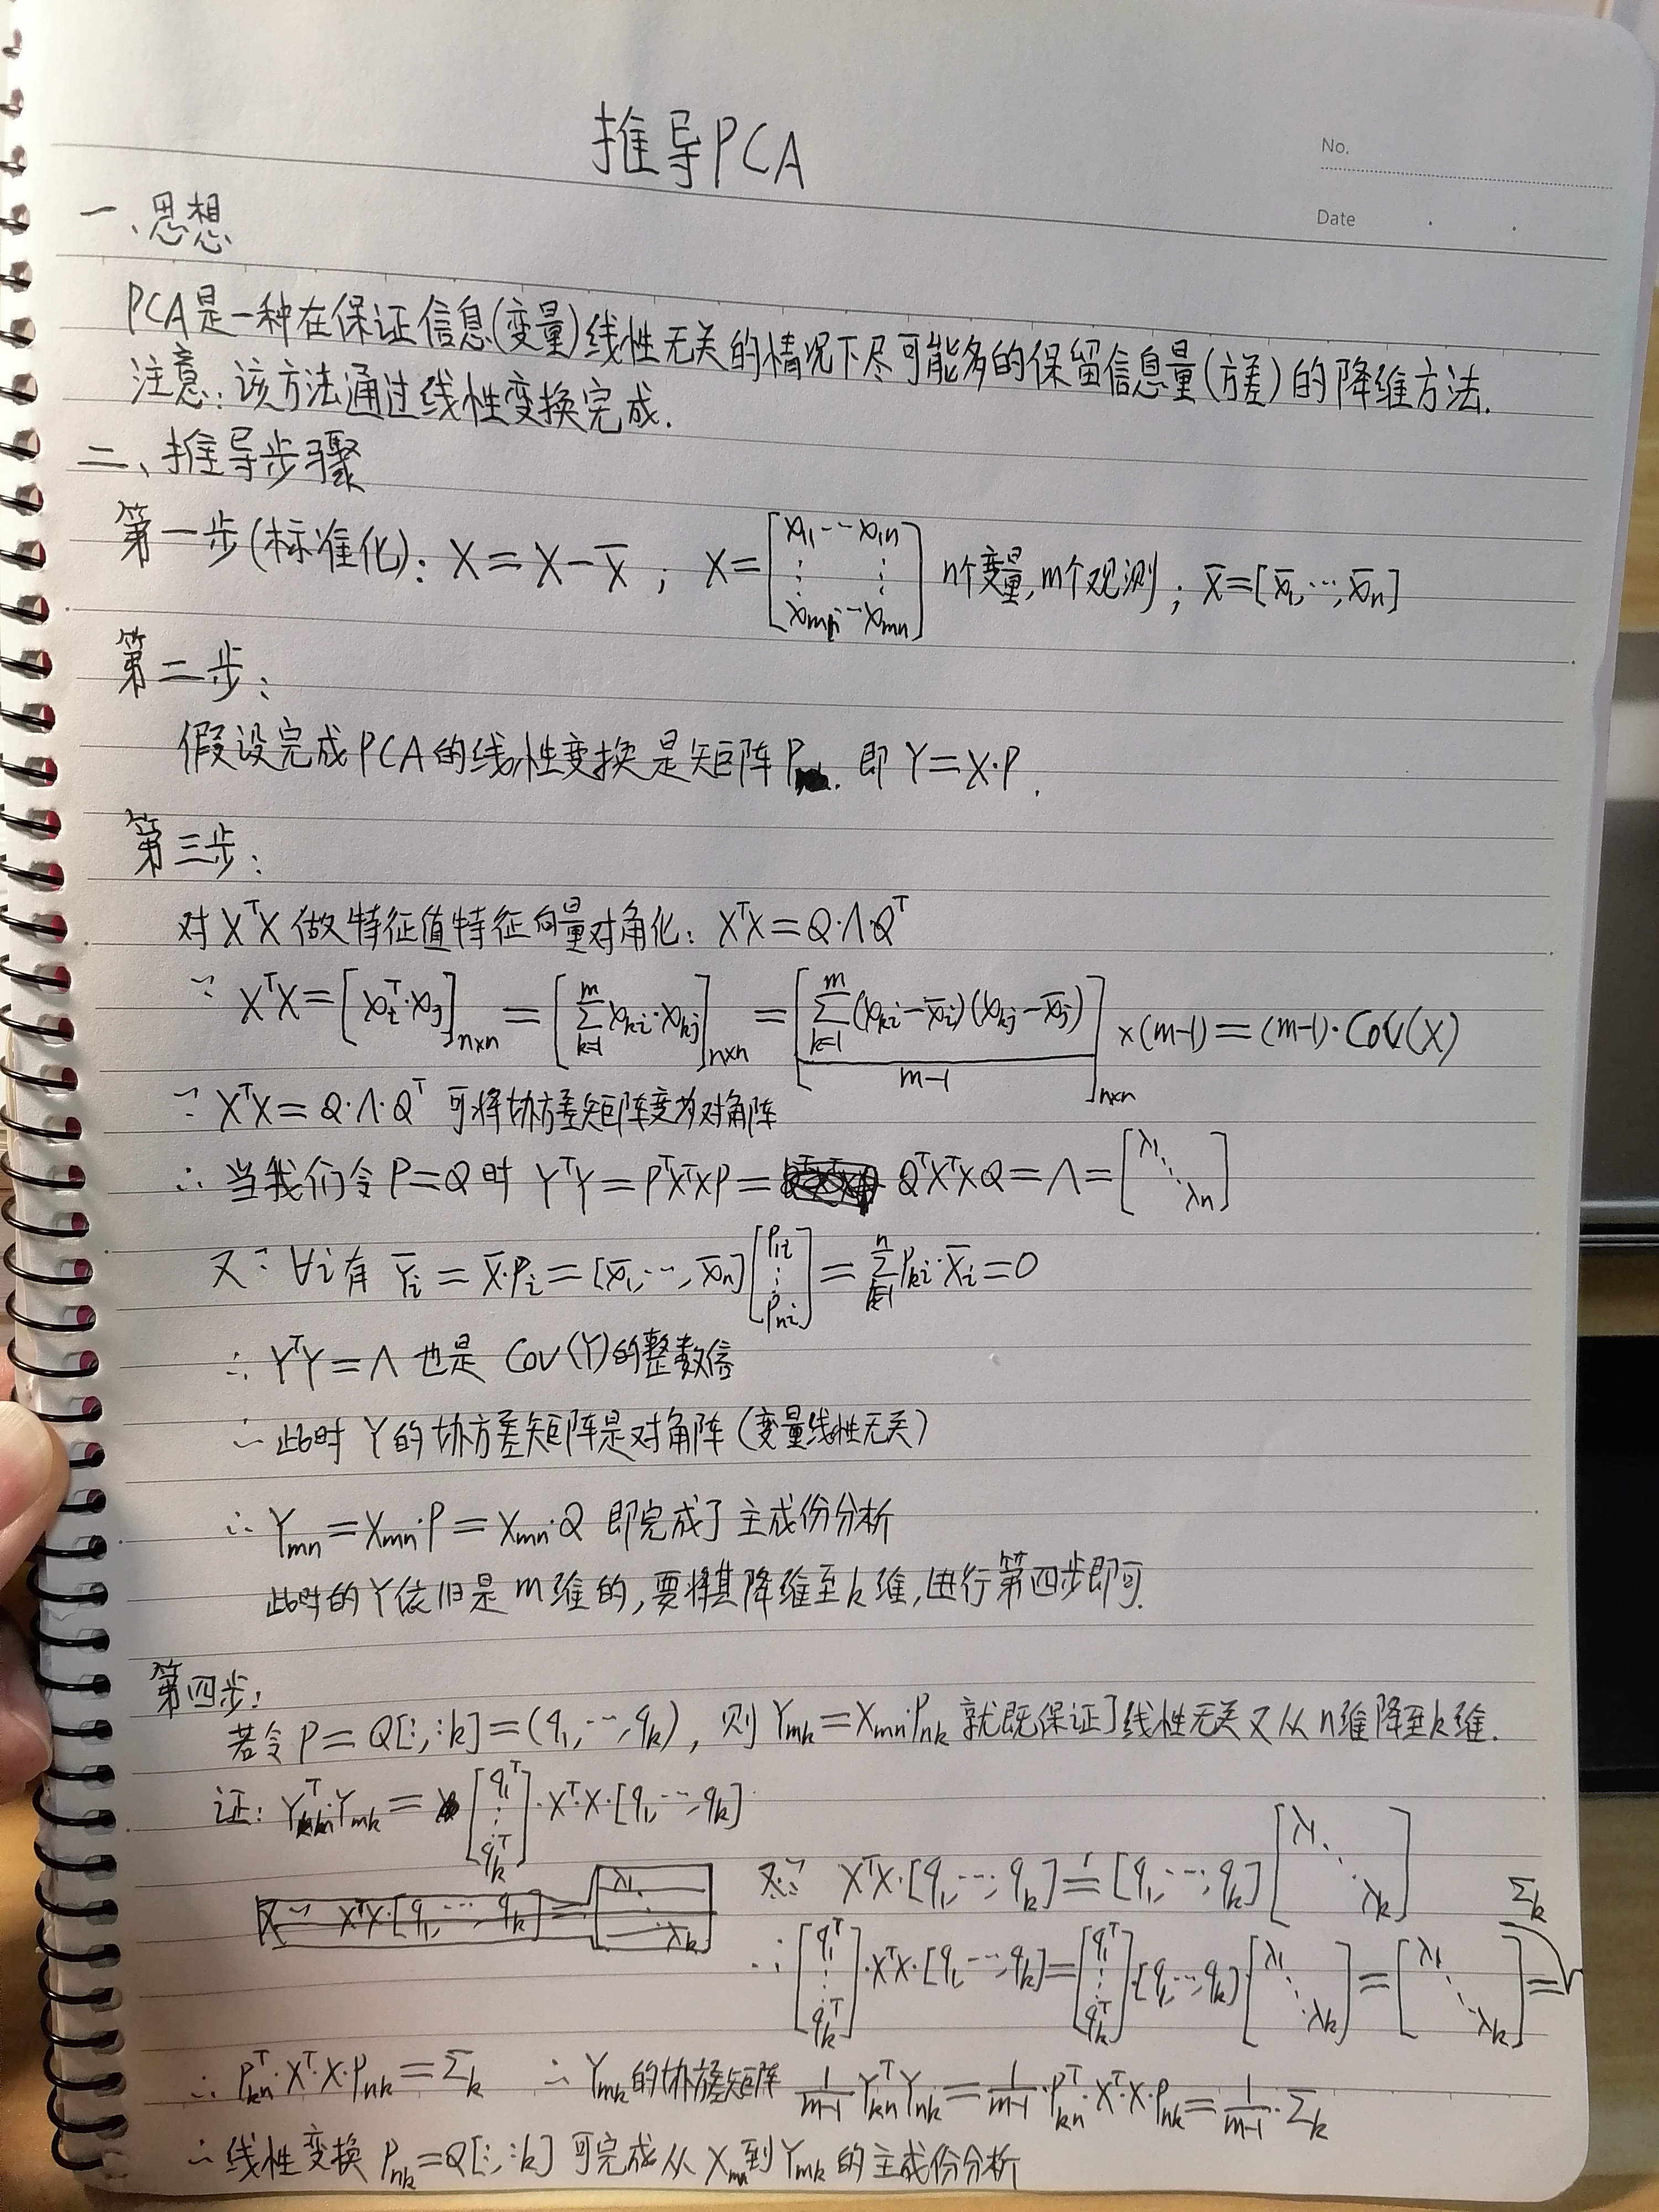 推导PCA
No.
Date
一、思想
PCA是一种在保证信息(变量)线性无关的情况下尽可能多的保留信息量(方差)的降维方法.
注意:该方法通过线性变换完成.
二、推导步骤
第一步(标准化): X = X - X̄ ; X = [x₁₁ ⋯ x₁ₙ ⋮ ⋮ xₘ₁ ⋯ xₘₙ] n个变量, m个观测; X̄ = [x̄₁, ⋯, x̄ₙ]
第二步:
假设完成PCA的线性变换是矩阵P. 即 Y = X·P.
第三步:
对 XᵀX 做特征值特征向量对角化: XᵀX = Q·Λ·Qᵀ
∵ XᵀX = [xᵢᵀ·xⱼ]ₙₓₙ = [∑ₖ₌₁ᵐ xₖᵢ·xₖⱼ]ₙₓₙ = [∑ₖ₌₁ᵐ (xₖᵢ - x̄ᵢ)(xₖⱼ - x̄ⱼ) / (m-1)]ₙₓₙ × (m-1) = (m-1)·Cov(X)
∵ XᵀX = Q·Λ·Qᵀ 可将协方差矩阵变为对角阵
∴ 当我们令 P = Q 时 YᵀY = PᵀXᵀXP = QᵀXᵀXQ = Λ = [λ₁ ⋱ λₙ]
又∵ ∀i 有 Ȳᵢ = X̄·Pᵢ = [x̄₁, ⋯, x̄ₙ][P₁ᵢ ⋮ Pₙᵢ] = ∑ₖ₌₁ⁿ Pₖᵢ·X̄ᵢ = 0
∴ YᵀY = Λ 也是 Cov(Y)的整数倍
∴ 此时 Y 的协方差矩阵是对角阵(变量线性无关)
∴ Yₘₙ = Xₘₙ·P = Xₘₙ·Q 即完成了主成份分析
此时的Y依旧是m维的,要将其降维至k维,进行第四步即可.
第四步:
若令 P = Q[:, :k] = (q₁, ⋯, qₖ), 则 Yₘₖ = Xₘₙ·Pₙₖ 就既保证了线性无关又从n维降至k维.
证: Yᵀ·Yₘₖ = [q₁ᵀ ⋮ qₖᵀ]·Xᵀ·X·[q₁, ⋯, qₖ]
又∵ XᵀX·[q₁, ⋯, qₖ] = [q₁, ⋯, qₖ][λ₁ ⋱ λₖ]
∴ [q₁ᵀ ⋮ qₖᵀ]·XᵀX·[q₁, ⋯, qₖ] = [q₁ᵀ ⋮ qₖᵀ]·[q₁, ⋯, qₖ]·[λ₁ ⋱ λₖ] = [λ₁ ⋱ λₖ] = Σₖ
∴ Pₖₙᵀ·Xᵀ·X·Pₙₖ = Σₖ ∴ Yₘₖ的协方差矩阵 1/(m-1) Yₖₙᵀ Yₙₖ = 1/(m-1)·Pₖₙᵀ·Xᵀ·X·Pₙₖ = 1/(m-1)·Σₖ
∴ 线性变换 Pₙₖ = Q[:, :k] 可完成从 Xₘₙ到Yₘₖ 的主成份分析